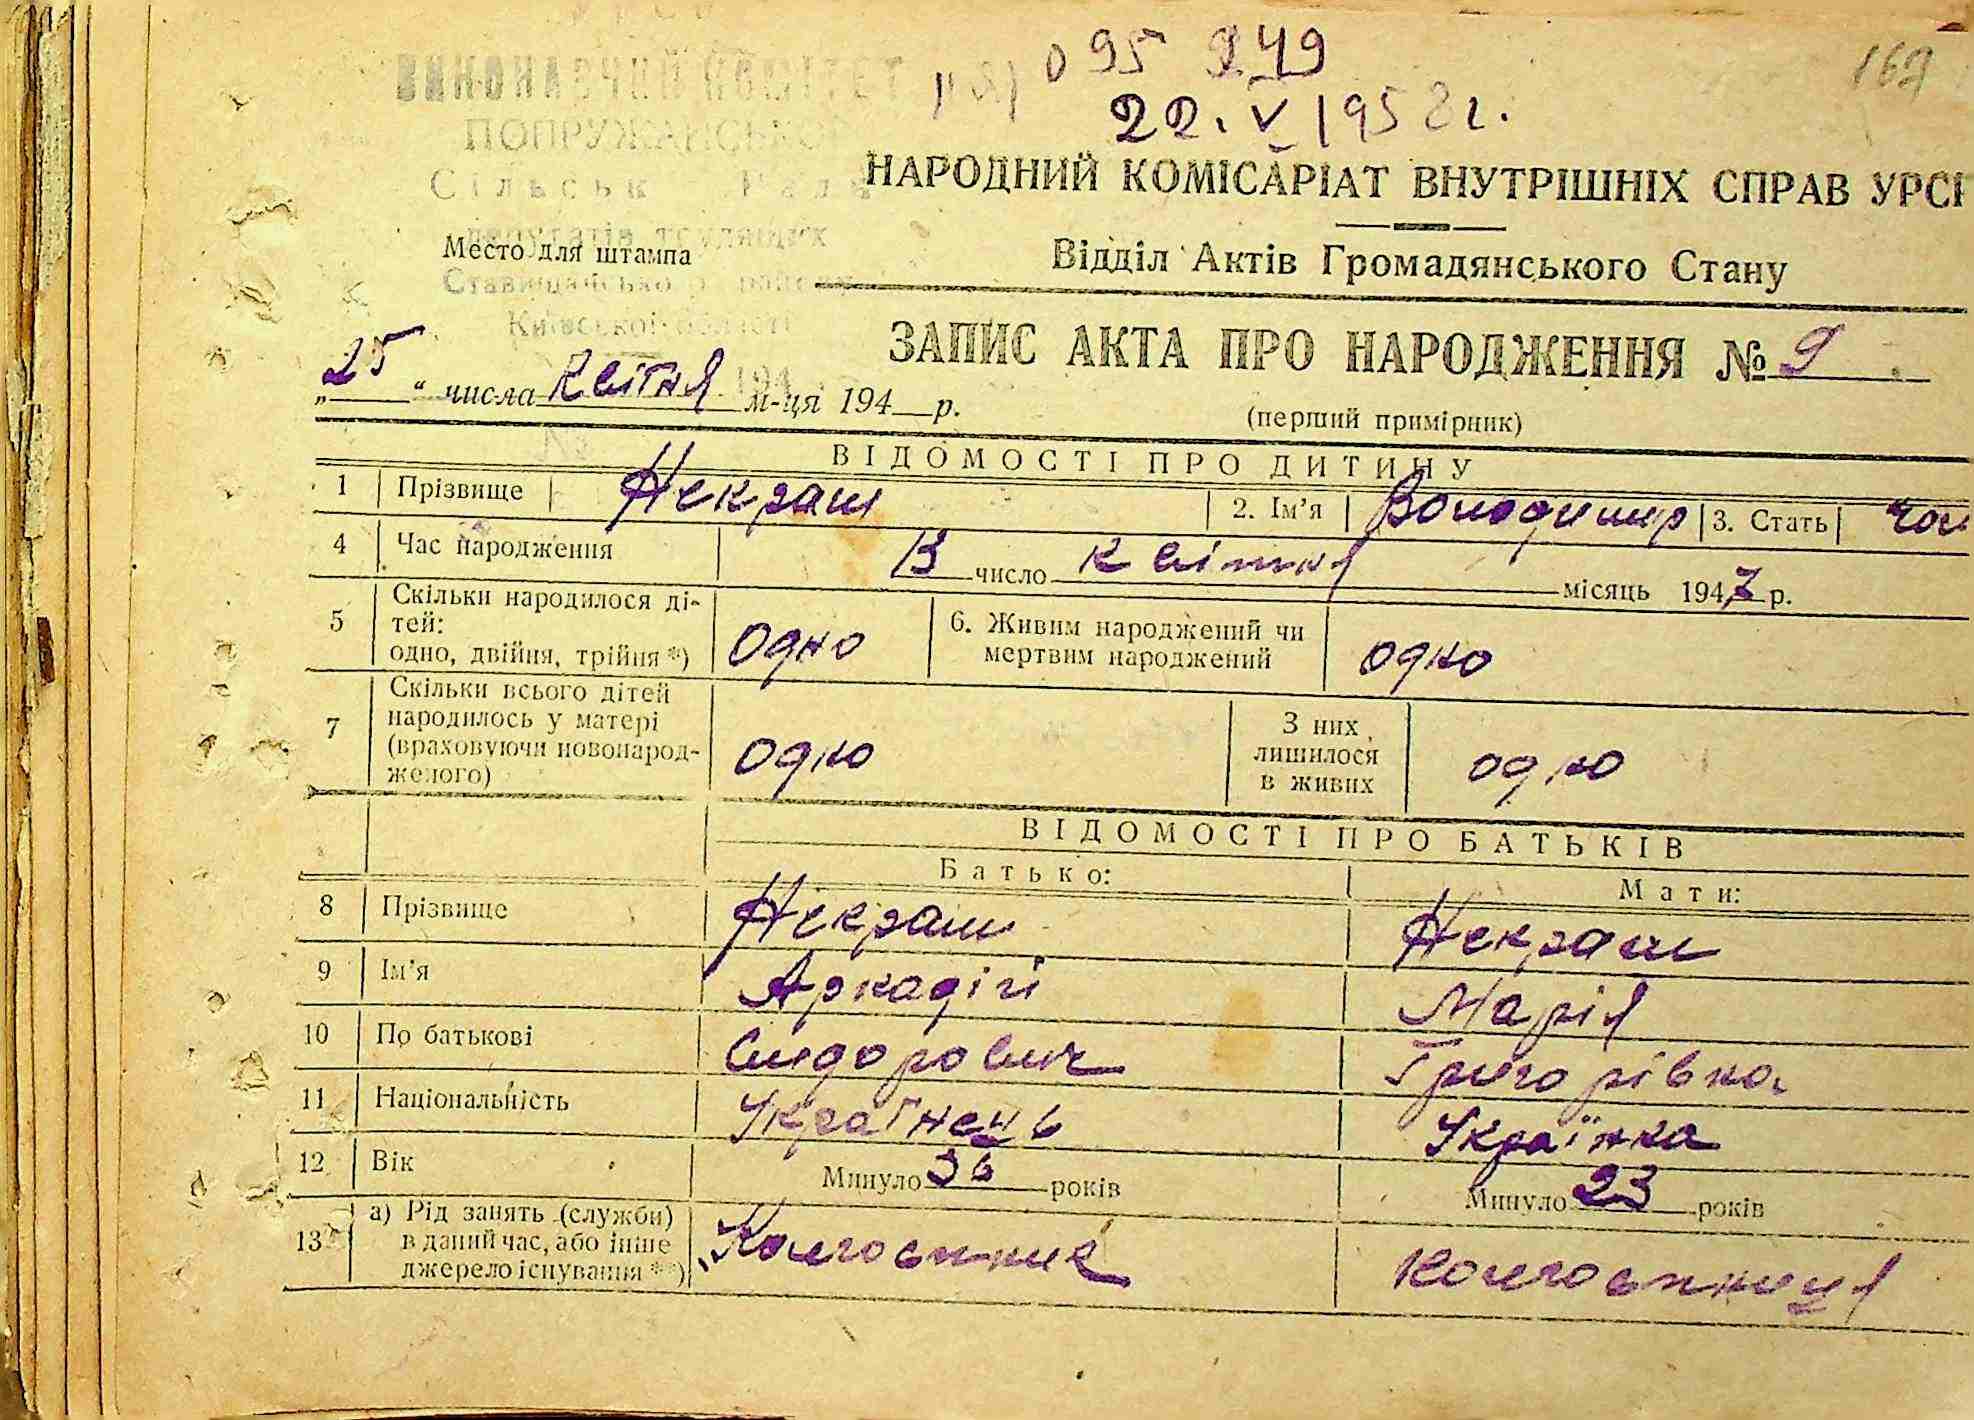 095 949
162
22. V 1952 г.
ВИКОНАВЧИЙ КОМІТЕТ
ПОПРУЖАНСЬКОЇ
Сільськ Рад
депутатів трудящих
Ставищанського району
Київської області
194
№
НАРОДНИЙ КОМІСАРІАТ ВНУТРІШНІХ СПРАВ УРСР
Место для штампа
Відділ Актів Громадянського Стану
ЗАПИС АКТА ПРО НАРОДЖЕННЯ № 9
„25“ числа квітня м-ця 194 р.
(перший примірник)
ВІДОМОСТІ ПРО ДИТИНУ
1 Прізвище Некраш 2. Ім’я Володимир 3. Стать чол
4 Час народження 13 число квітня місяць 1947 р.
5 Скільки народилося ді-
тей:
одно, двійня, трійня *) Одно 6. Живим народжений чи
мертвим народжений одно
7 Скільки всього дітей
народилось у матері
(враховуючи новонарод-
желого) одно З них
лишилося
в живих одно
ВІДОМОСТІ ПРО БАТЬКІВ
Батько: Мати:
8 Прізвище Некраш Некраш
9 Ім’я Аркадій Марія
10 По батькові Сидорович Григорівна
11 Національність Українець Українка
12 Вік Минуло 36 років Минуло 23 років
13 а) Рід занять (служби)
в даний час, або інше
джерело існування **) Колгоспник колгоспниця